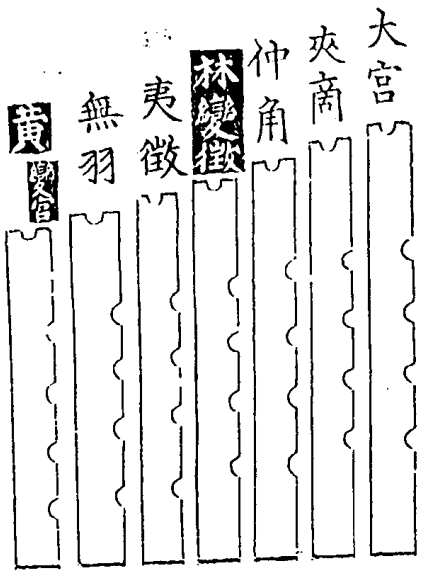 大宫
夾商
仲角
林變徵
夷徵
無羽
黄變宫